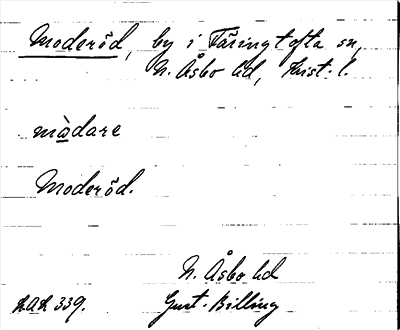 Moderöd, by i Färingtofta sn,
N. Åsbo hd, Krist. l.
màdare
Moderöd.
N. Åsbo hd
LAL 339. Gust. Billing